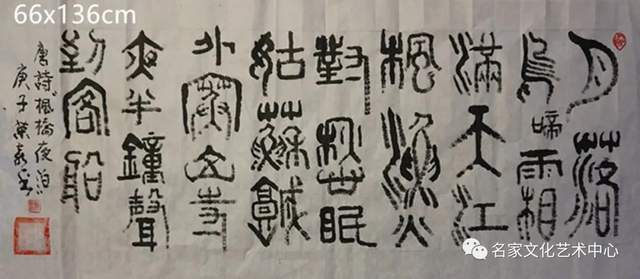 66x136cm
月落
烏啼霜
滿天江
楓漁火
對愁眠
姑蘇城
外寒山寺
夜半鐘聲
到客船
唐詩楓橋夜泊
庚子
名家文化艺术中心